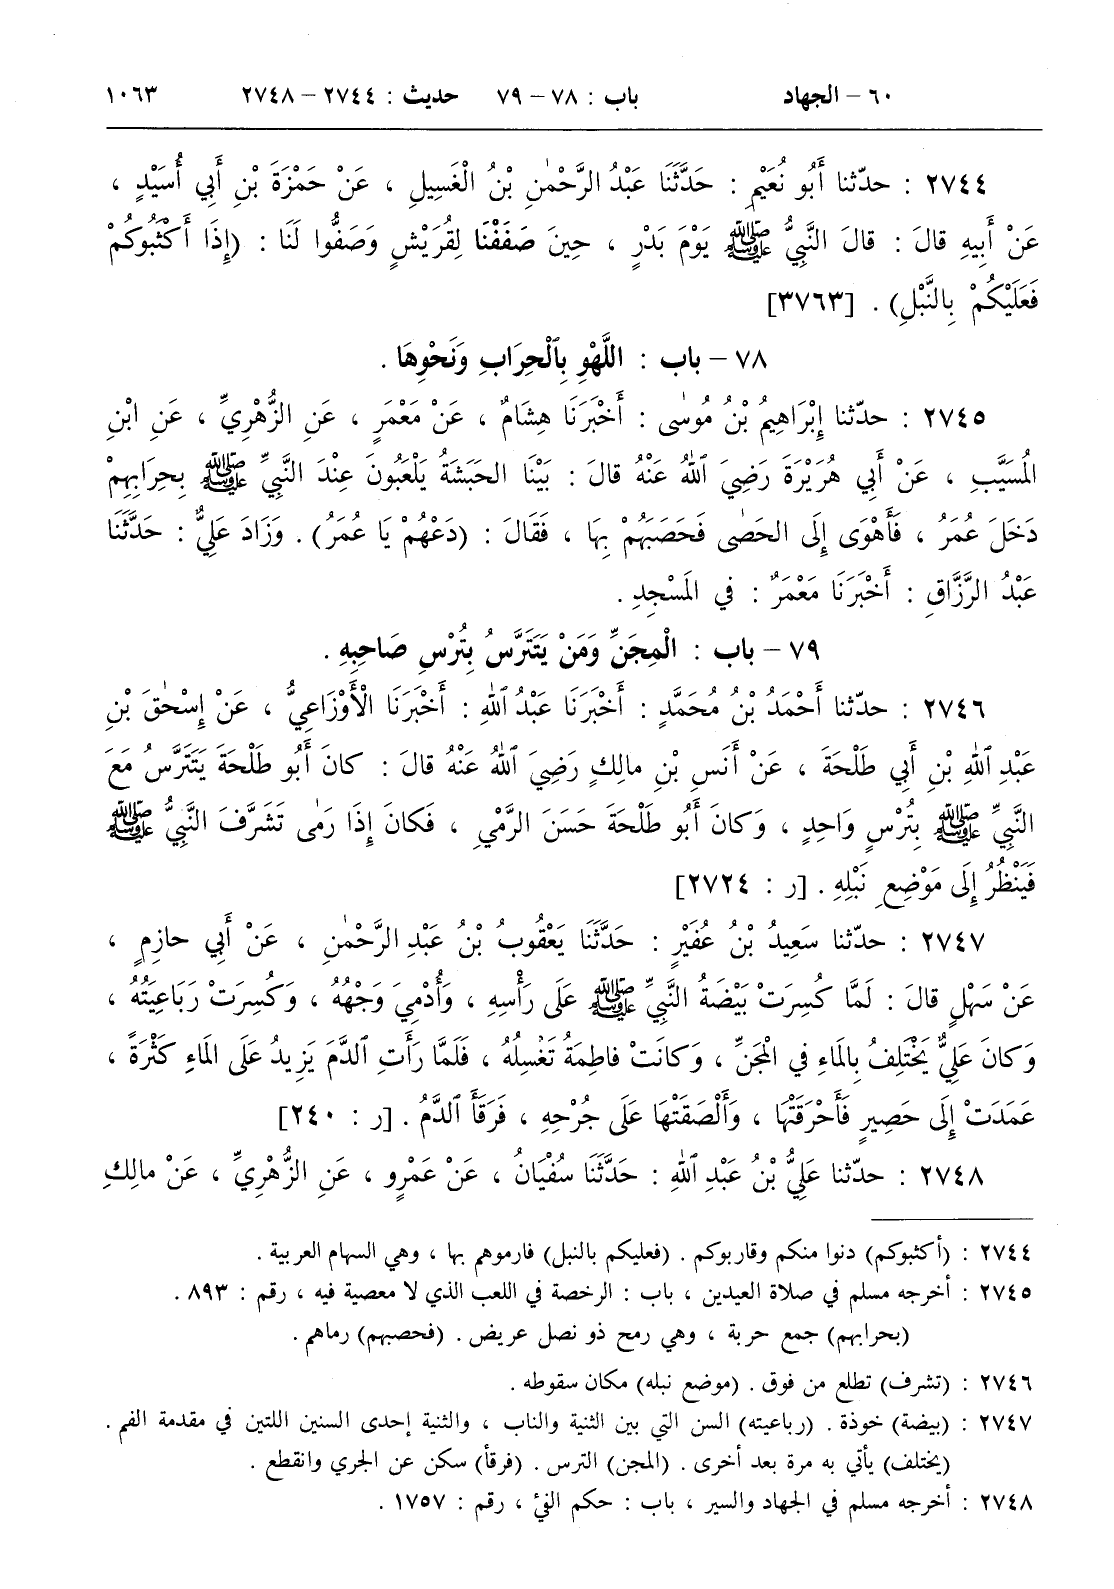 ٦٠ – الجهاد باب : ٧٨ – ٧٩ حديث : ٢٧٤٤ – ٢٧٤٨ ١٠٦٣
٢٧٤٤ : حدّثنا أَبُو نُعَيْمٍ : حَدَّثَنَا عَبْدُ الرَّحْمٰنِ بْنُ الْغَسِيلِ ، عَنْ حَمْزَةَ بْنِ أَبِي أُسَيْدٍ ،
عَنْ أَبِيهِ قالَ : قالَ النَّبِيُّ ﷺ يَوْمَ بَدْرٍ ، حِينَ صَفَفْنَا لِقُرَيْشٍ وَصَفُّوا لَنَا : (إِذَا أَكْثَبُوكُمْ
فَعَلَيْكُمْ بِالنَّبْلِ) . [٣٧٦٣]
٧٨ – باب : اللَّهْوِ بِٱلْحِرَابِ وَنَحْوِهَا .
٢٧٤٥ : حدّثنا إِبْرَاهِيمُ بْنُ مُوسٰى : أَخْبَرَنَا هِشَامٌ ، عَنْ مَعْمَرٍ ، عَنِ الزُّهْرِيِّ ، عَنِ ابْنِ
الْمُسَيَّبِ ، عَنْ أَبِي هُرَيْرَةَ رَضِيَ ٱللهُ عَنْهُ قالَ : بَيْنَا الحَبَشَةُ يَلْعَبُونَ عِنْدَ النَّبِيِّ ﷺ بِحِرَابِهِمْ
دَخَلَ عُمَرُ ، فَأَهْوَى إِلَى الحَصٰى فَحَصَبَهُمْ بِهَا ، فَقَالَ : (دَعْهُمْ يَا عُمَرُ) . وَزَادَ عَلِيٌّ : حَدَّثَنَا
عَبْدُ الرَّزَّاقِ : أَخْبَرَنَا مَعْمَرٌ : في المَسْجِدِ .
٧٩ – باب : الْمِجَنِّ وَمَنْ يَتَتَرَّسُ بِتُرْسِ صَاحِبِهِ .
٢٧٤٦ : حدّثنا أَحْمَدُ بْنُ مُحَمَّدٍ : أَخْبَرَنَا عَبْدُ ٱللهِ : أَخْبَرَنَا الْأَوْزَاعِيُّ ، عَنْ إِسْحٰقَ بْنِ
عَبْدِ ٱللهِ بْنِ أَبِي طَلْحَةَ ، عَنْ أَنَسِ بْنِ مالِكٍ رَضِيَ ٱللهُ عَنْهُ قالَ : كانَ أَبُو طَلْحَةَ يَتَتَرَّسُ مَعَ
النَّبِيِّ ﷺ بِتُرْسٍ وَاحِدٍ ، وَكانَ أَبُو طَلْحَةَ حَسَنَ الرَّمْيِ ، فَكانَ إِذَا رَمٰى تَشَرَّفَ النَّبِيُّ ﷺ
فَيَنْظُرُ إِلَى مَوْضِعِ نَبْلِهِ . [ر : ٢٧٢٤]
٢٧٤٧ : حدّثنا سَعِيدُ بْنُ عُفَيْرٍ : حَدَّثَنَا يَعْقُوبُ بْنُ عَبْدِ الرَّحْمٰنِ ، عَنْ أَبِي حازِمٍ ،
عَنْ سَهْلٍ قالَ : لَمَّا كُسِرَتْ بَيْضَةُ النَّبِيِّ ﷺ عَلَى رَأْسِهِ ، وَأُدْمِيَ وَجْهُهُ ، وَكُسِرَتْ رَبَاعِيَتُهُ ،
وَكانَ عَلِيٌّ يَخْتَلِفُ بِالمَاءِ فِي الْمِجَنِّ ، وَكانَتْ فاطِمَةُ تَغْسِلُهُ ، فَلَمَّا رَأَتِ ٱلدَّمَ يَزِيدُ عَلَى المَاءِ كَثْرَةً ،
عَمَدَتْ إِلَى حَصِيرٍ فَأَحْرَقَتْهَا ، وَأَلْصَقَتْهَا عَلَى جُرْحِهِ ، فَرَقَأَ ٱلدَّمُ . [ر : ٢٤٠]
٢٧٤٨ : حدّثنا عَلِيُّ بْنُ عَبْدِ ٱللهِ : حَدَّثَنَا سُفْيَانُ ، عَنْ عَمْرٍو ، عَنِ الزُّهْرِيِّ ، عَنْ مالِكِ
٢٧٤٤ : (أكثبوكم) دنوا منكم وقاربوكم . (فعليكم بالنبل) فارموهم بها ، وهي السهام العربية .
٢٧٤٥ : أخرجه مسلم في صلاة العيدين ، باب : الرخصة في اللعب الذي لا معصية فيه ، رقم : ٨٩٣ .
(بحرابهم) جمع حربة ، وهي رمح ذو نصل عريض . (فحصبهم) رماهم .
٢٧٤٦ : (تشرف) تطلع من فوق . (موضع نبله) مكان سقوطه .
٢٧٤٧ : (بيضة) خوذة . (رباعيته) السن التي بين الثنية والناب ، والثنية إحدى السنين اللتين في مقدمة الفم .
(يختلف) يأتي به مرة بعد أخرى . (المجن) الترس . (فرقأ) سكن عن الجري وانقطع .
٢٧٤٨ : أخرجه مسلم في الجهاد والسير ، باب : حكم الفيْ ، رقم : ١٧٥٧ .